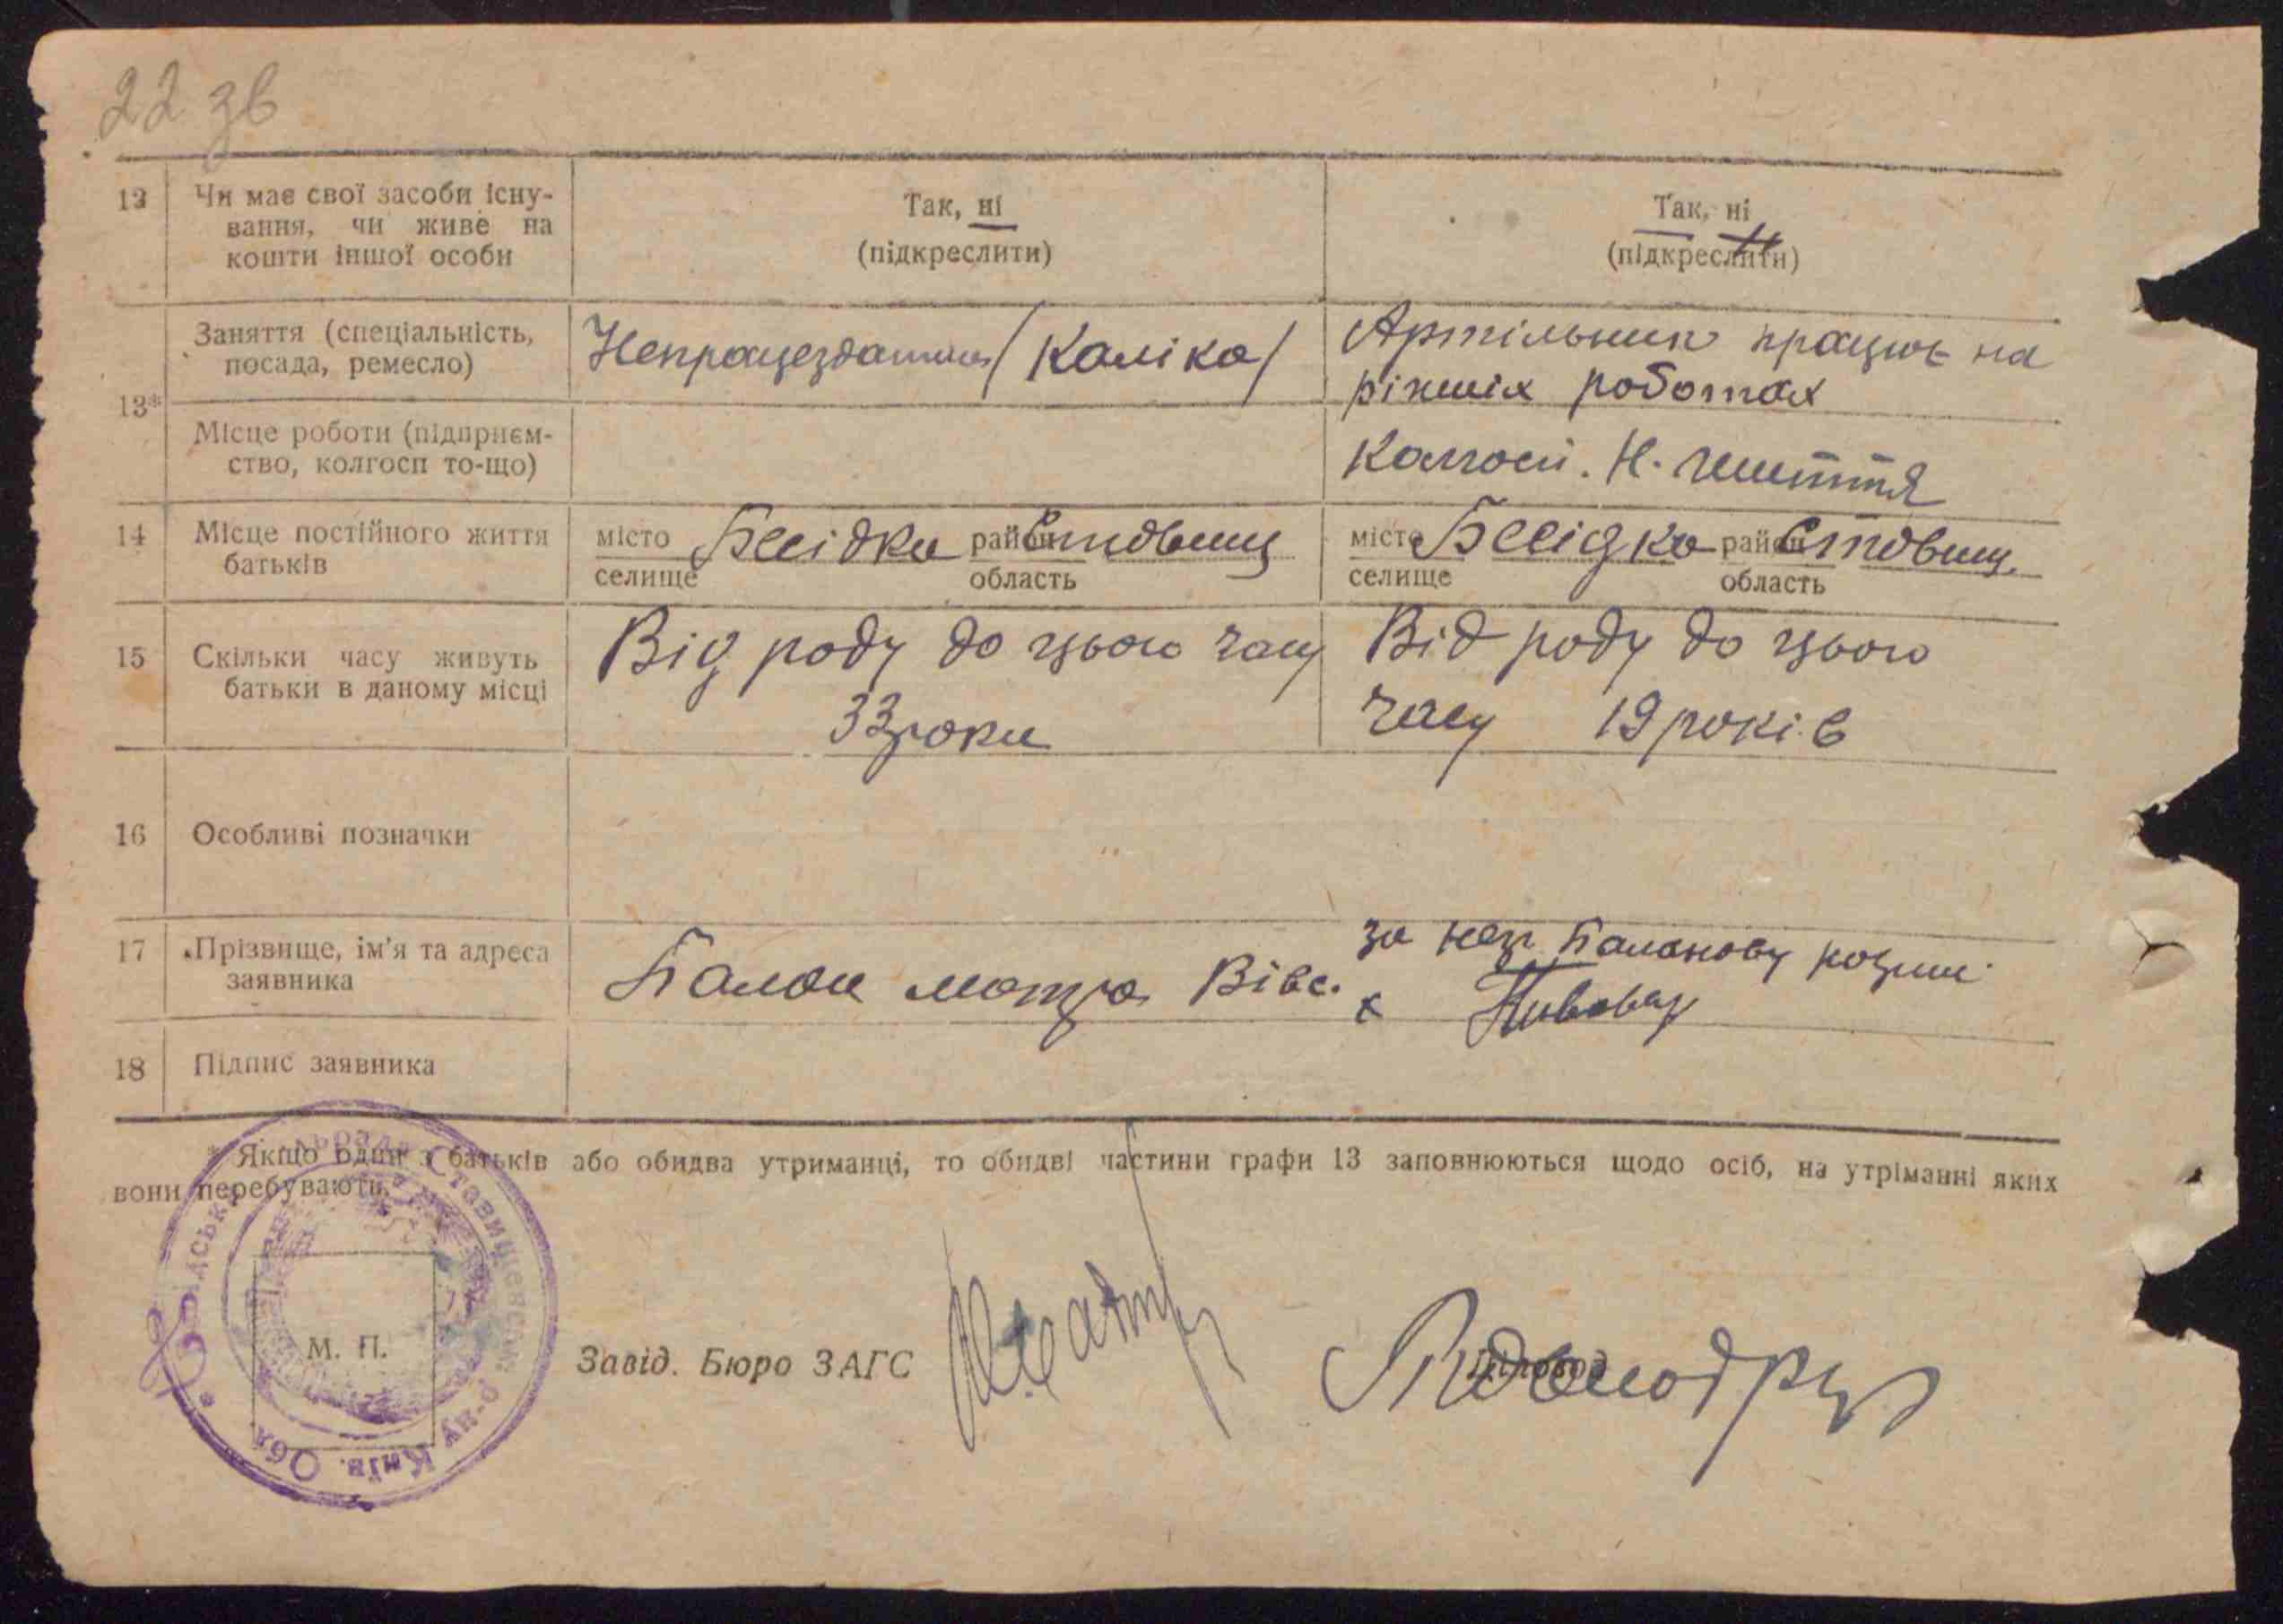 22 зв
12 Чи має свої засоби існу-
вання, чи живе на
кошти іншої особи
Так, ні
(підкреслити)
Так, ні
(підкреслити)
13*
Заняття (спеціальність,
посада, ремесло)
Непрацездатний /Каліка/
Артільник працює на
ріжніх роботах
Місце роботи (підприєм-
ство, колгосп то-що)
Колгосп. Н. життя
14 Місце постійного життя
батьків
місто Бесідка район Ставищ
селище область
місто Бесідка район Ставищ.
селище область
15 Скільки часу живуть
батьки в даному місці
Від роду до цього часу
33 роки
Від роду до цього
часу 19 років
16 Особливі позначки
17 Прізвище, ім'я та адреса
заявника
Балан Мотря
за неп Баланову
18 Підпис заявника
* Якщо один з батьків або обидва утриманці, то обидві частини графи 13 заповнюються щодо осіб, на утріманні яких
вони перебувають.
Ставищенськ
Київ. Обл.
М. П.
Завід. Бюро ЗАГС
Діловод